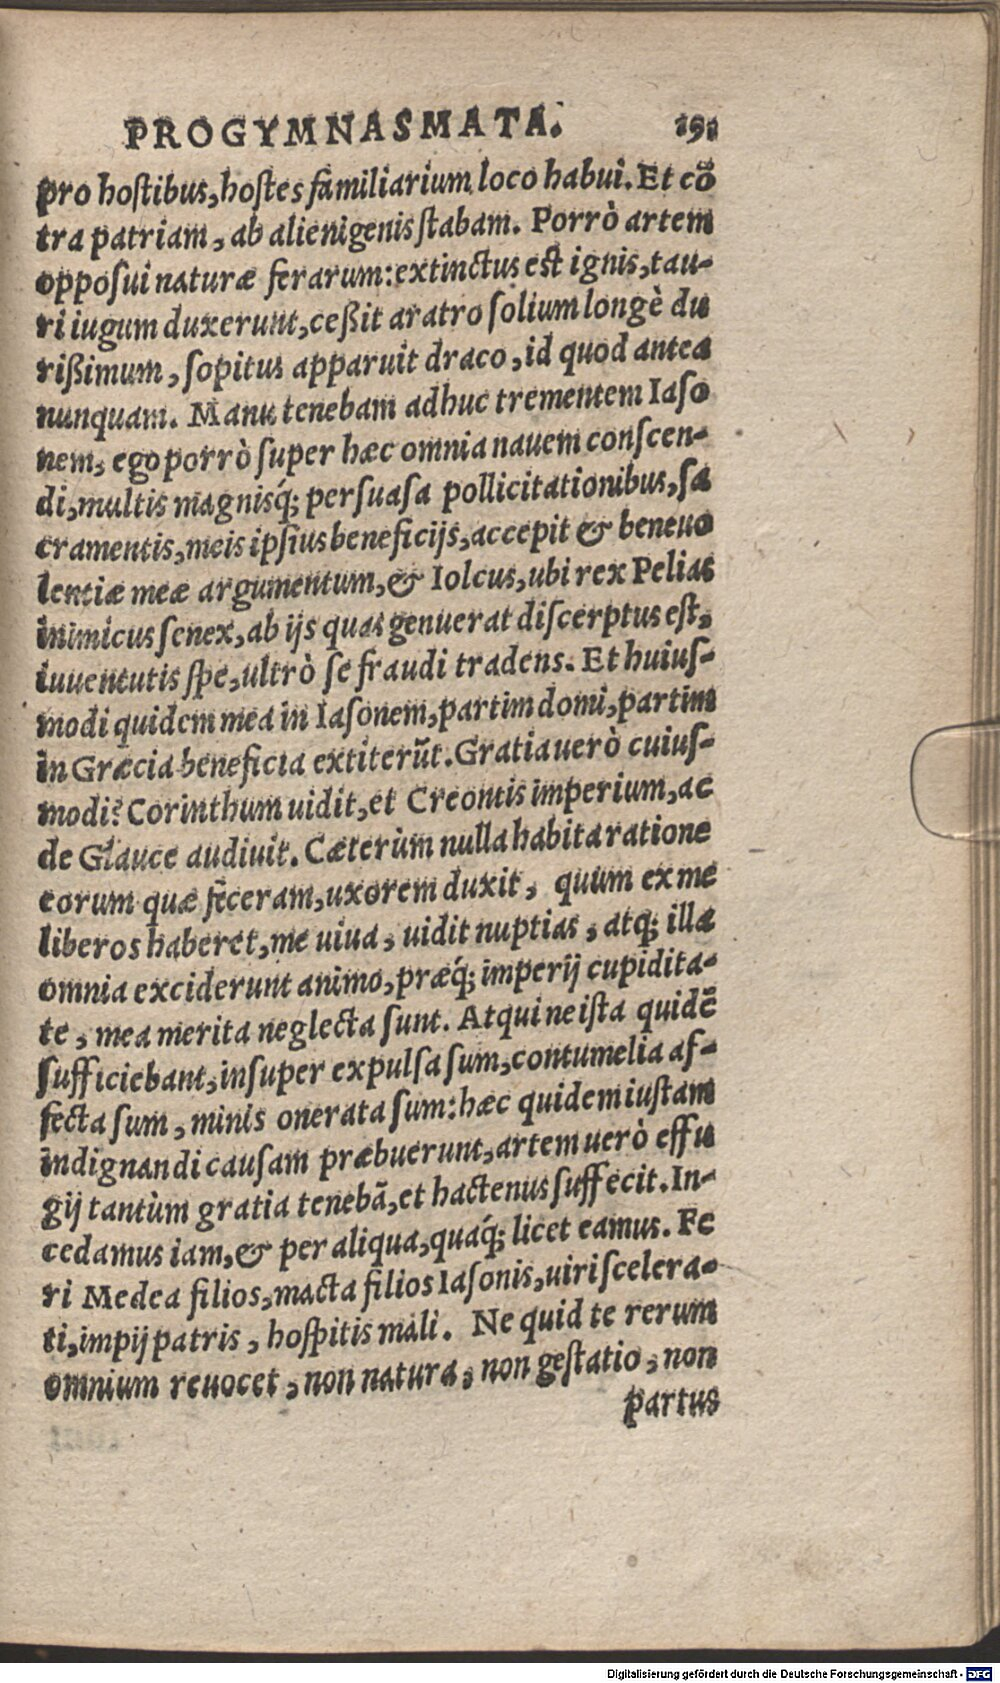 PROGYMNASMATA. 191
pro hostibus, hostes familiarium loco habui. Et cō
tra patriam, ab alienigenis stabam. Porrò artem
opposui naturæ ferarum: extinctus est ignis, tau-
ri iugum duxerunt, ceßit aratro solium longè du
rißimum, sopitus apparuit draco, id quod antea
nunquam. Manu tenebam adhuc trementem Iaso
nem, ego porrò super hæc omnia nauem conscen-
di, multis magnisq́; persuasa pollicitationibus, sa
cramentis, meis ipsius beneficijs, accepit & beneuo
lentiæ meæ argumentum, & Iolcus, ubi rex Pelias
inimicus senex, ab ijs quas genuerat discerptus est,
iuuentutis spe, ultrò se fraudi tradens. Et huius-
modi quidem mea in Iasonem, partim domi, partim
in Græcia beneficia extiterūt. Gratia uerò cuius-
modi? Corinthum uidit, et Creontis imperium, ac
de Glauce audiuit. Cæterùm nulla habita ratione
eorum quæ feceram, uxorem duxit, quum ex me
liberos haberet, me uiua, uidit nuptias, atq; illa
omnia exciderunt animo, præq́; imperij cupidita-
te, mea merita neglecta sunt. Atqui ne ista quidē
sufficiebant, insuper expulsa sum, contumelia af-
fecta sum, minis onerata sum: hæc quidem iustam
indignandi causam præbuerunt, artem uerò effu
gij tantùm gratia tenebā, et hactenus suffecit. In-
cedamus iam, & per aliqua, quaq́; licet eamus. Fe
ri Medea filios, macta filios Iasonis, uiri scelera-
ti, impij patris, hospitis mali. Ne quid te rerum
omnium reuocet, non natura, non gestatio, non
partus
Digitalisierung gefördert durch die Deutsche Forschungsgemeinschaft - DFG